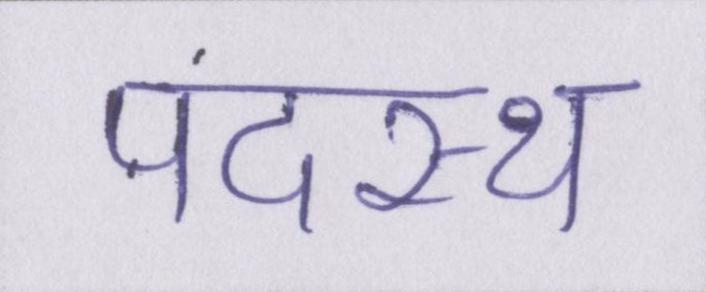 पंदस्थ